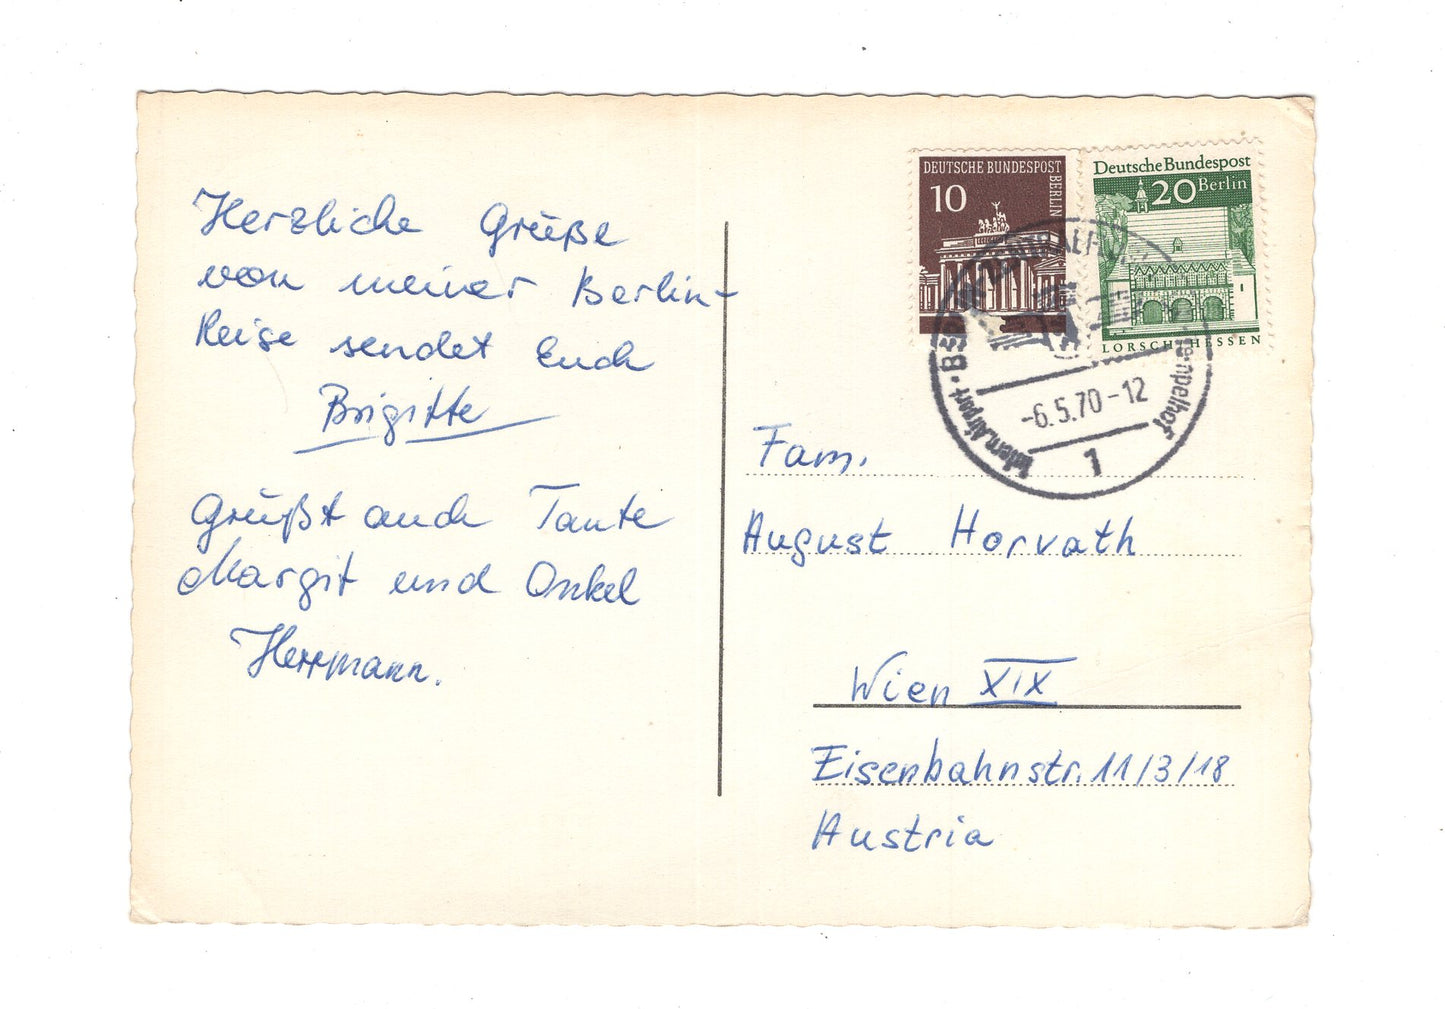 Herzliche Grüße
von meiner Berlin-
Reise sendet Euch
Brigitte
Grüßt auch Tante
Margit und Onkel
Herrmann.
DEUTSCHE BUNDESPOST
BERLIN
10
Deutsche Bundespost
20 Berlin
LORSCH HESSEN
-6.5.70-12
1
Fam.
August Horvath
Wien XIX
Eisenbahnstr. 11/3/18
Austria